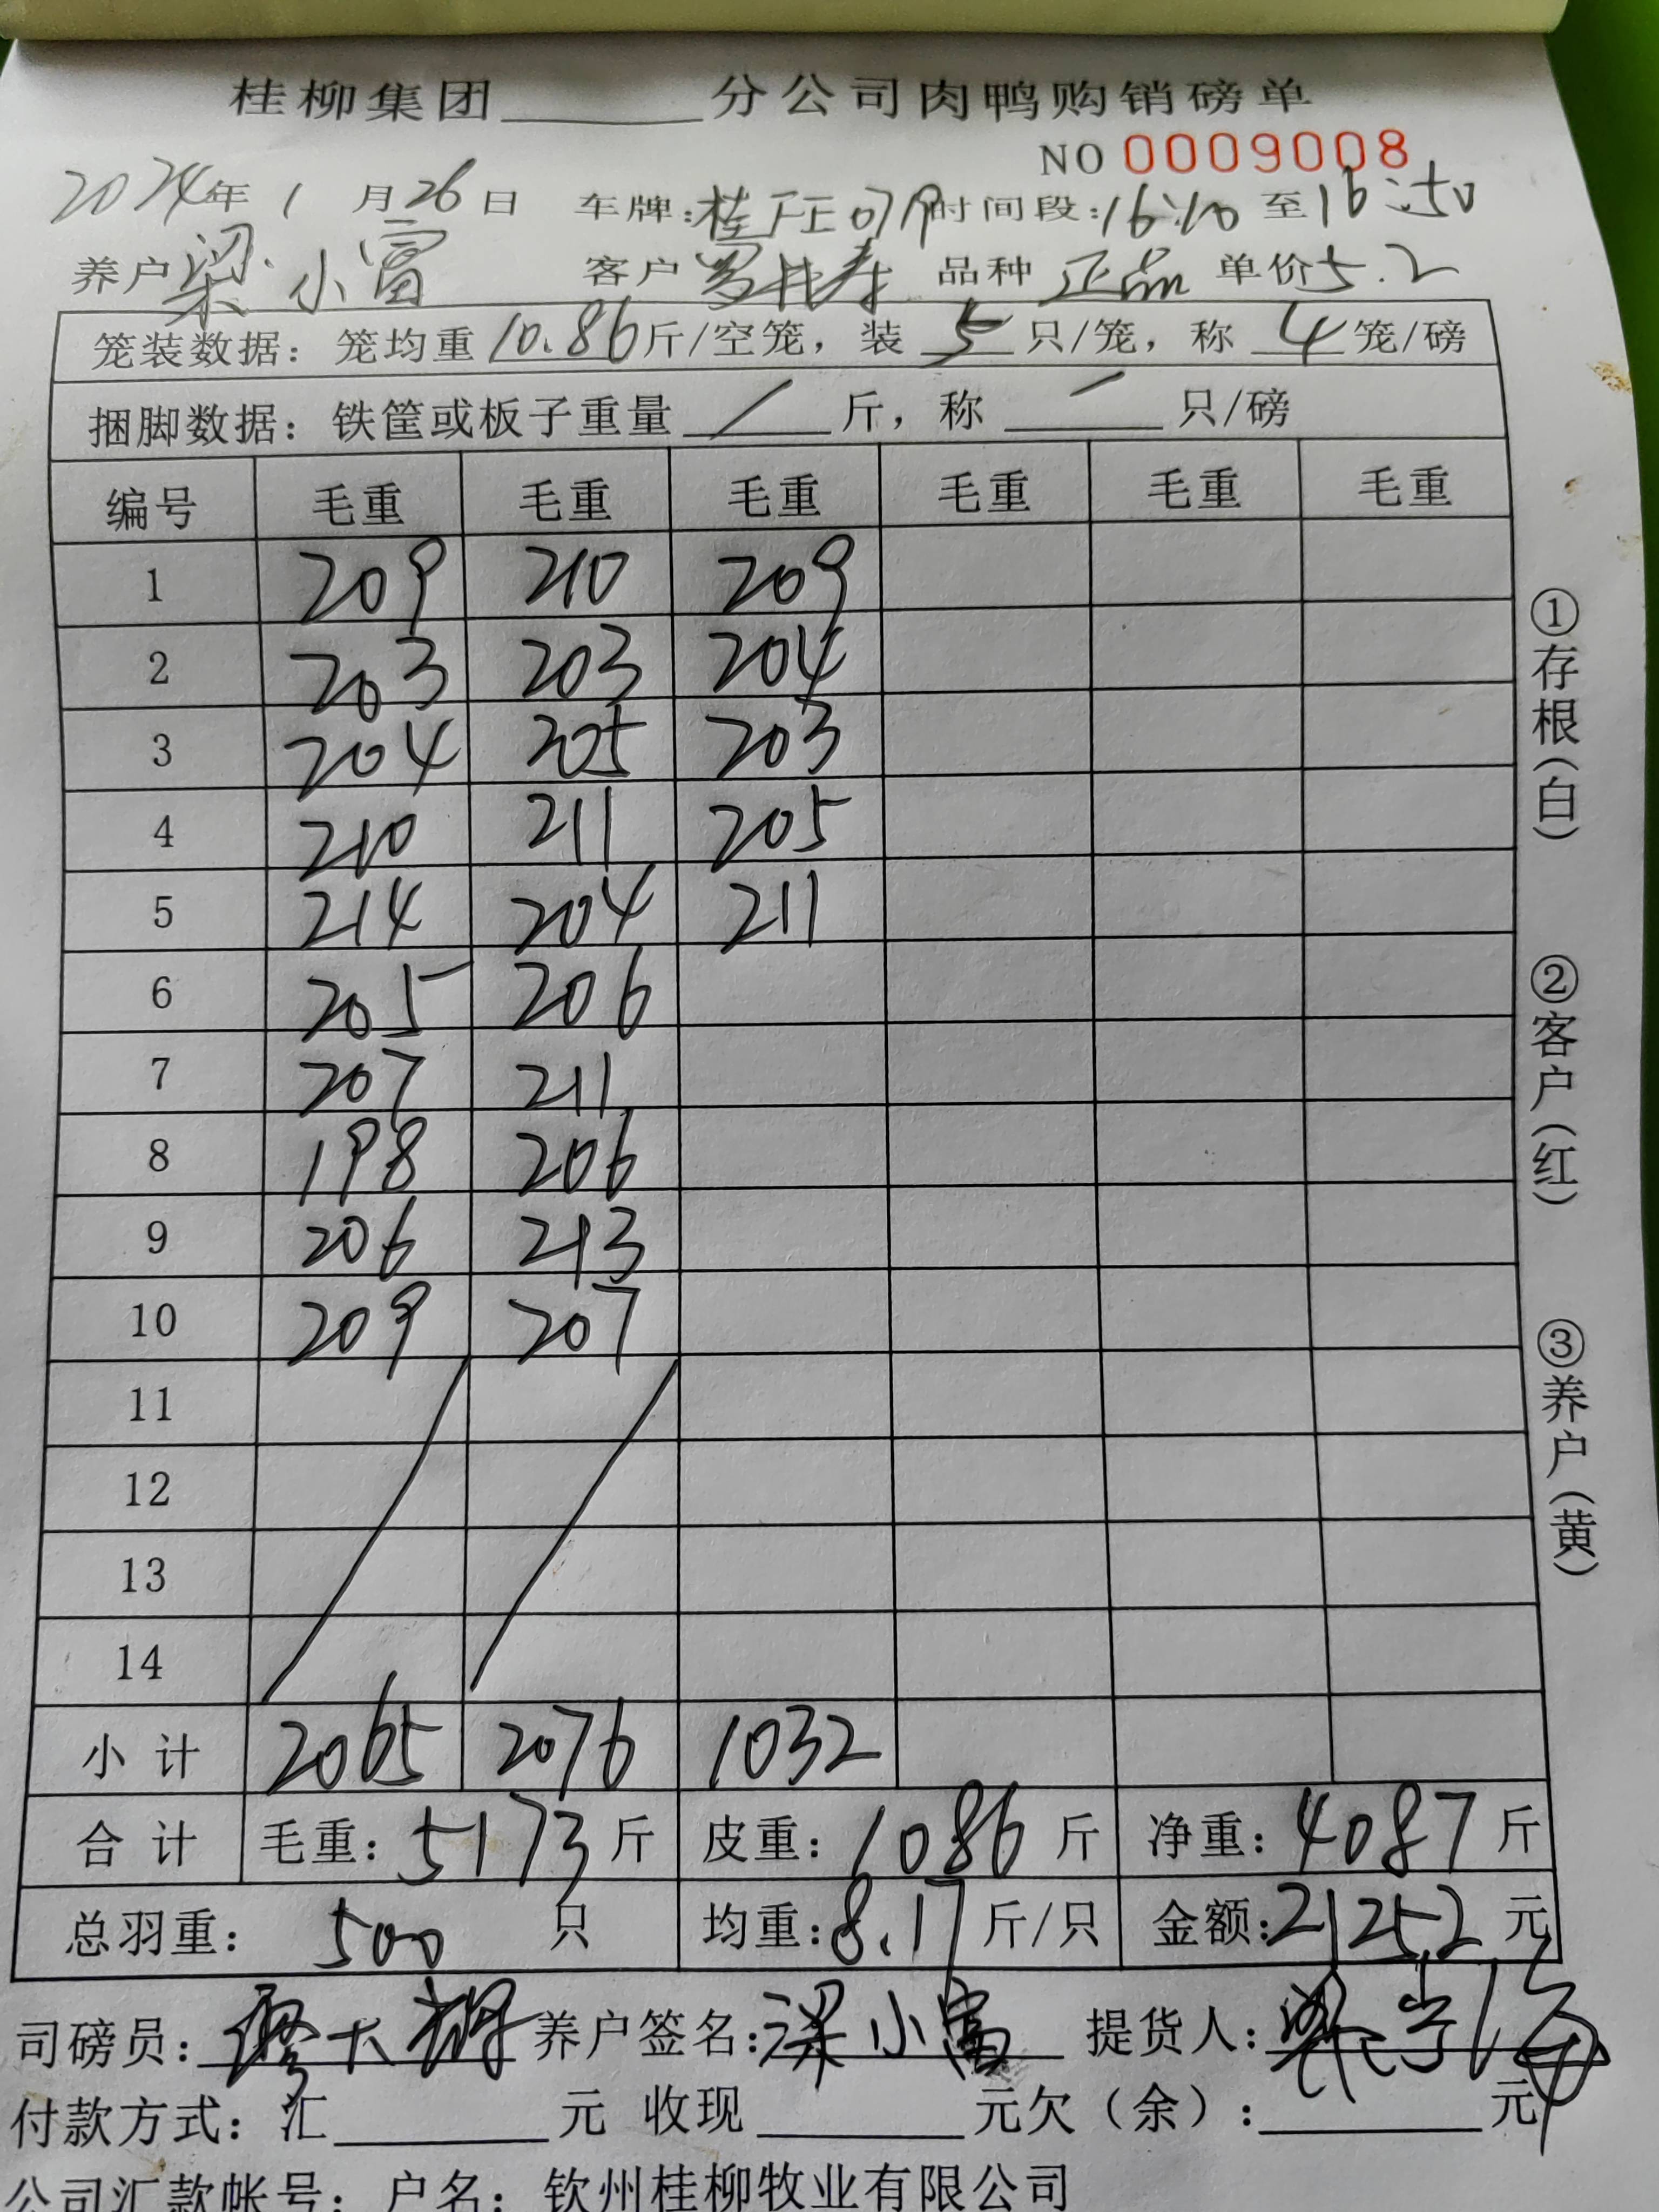 桂柳集团______分公司肉鸭购销磅单
NO 0009008
2024年1月26日 车牌: 时间段:16:10至16:50
养户梁小富 客户罗 寿 品种正品 单价5.2
笼装数据：笼均重10.86斤/空笼，装5只/笼，称4笼/磅
捆脚数据：铁筐或板子重量/斤，称一只/磅
编号 毛重 毛重 毛重 毛重 毛重 毛重
1 209 210 209
2 203 203 204
3 204 205 203
4 210 211 205
5 214 204 211
6 205 206
7 207 211
8 198 206
9 206 213
10 209 207
11
12
13
14
小计 2065 2076 1032
合计 毛重：5173斤 皮重：1086斤 净重：4087斤
总羽重：500只 均重：8.17斤/只 金额：21252元
司磅员： 养户签名：梁小富 提货人：
付款方式：汇______元 收现______元欠（余）：______元
公司汇款帐号：户名：钦州桂柳牧业有限公司
①存根（白）
②客户（红）
③养户（黄）